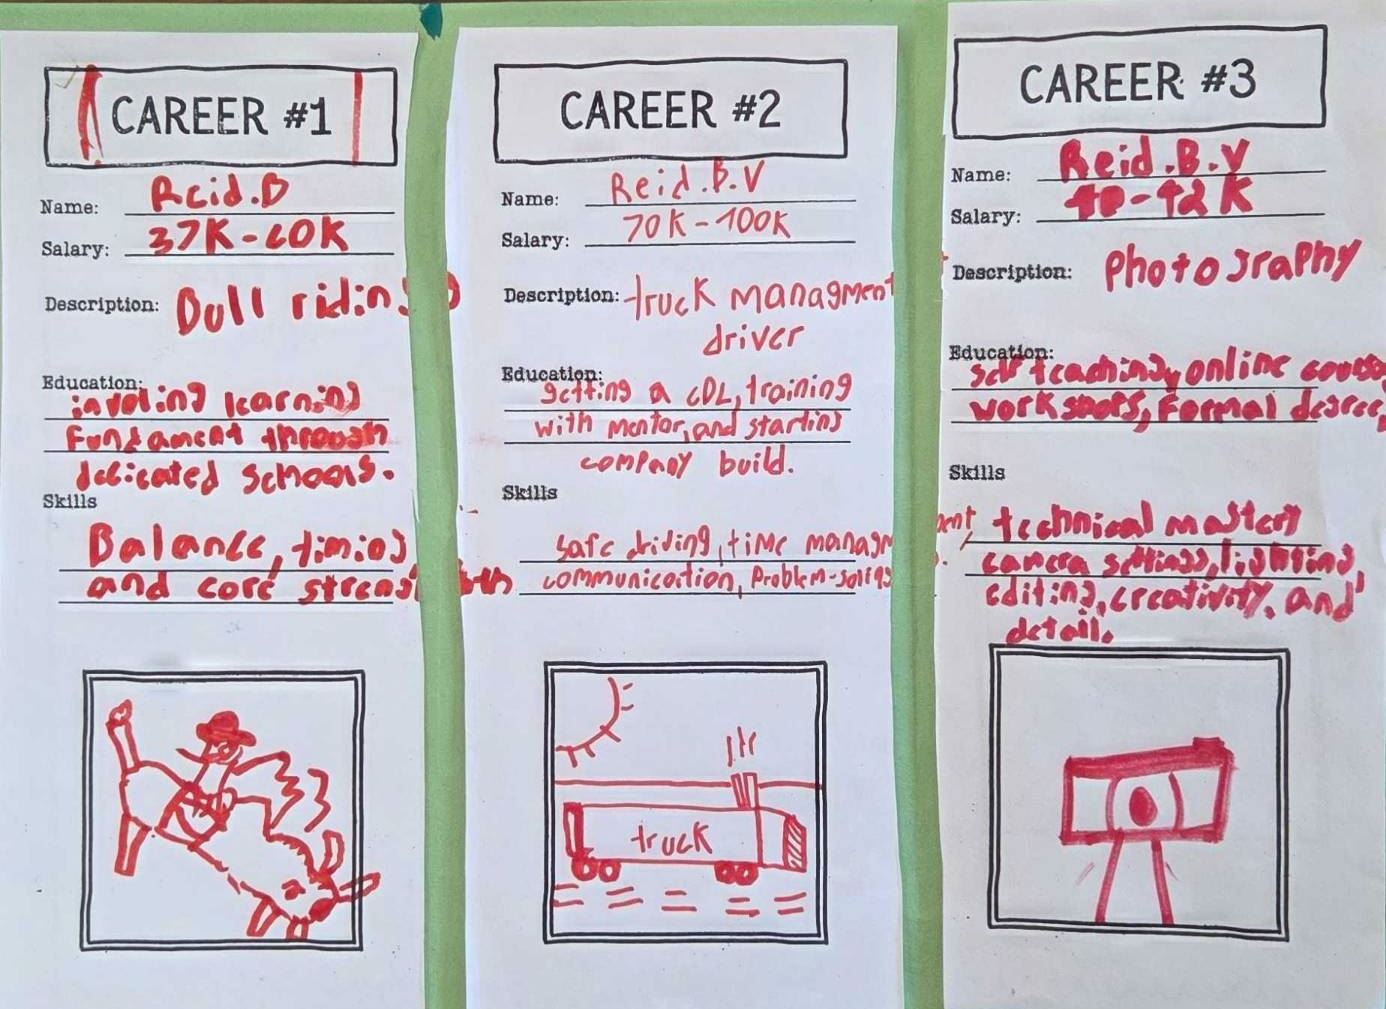 CAREER #1
Name: Reid.B
Salary: 37K-60K
Description: Bull riding
Education:
involing learning
Fundament through
dedicated schools.
Skills
Balance, timing
and core strength
CAREER #2
Name: Reid.B.V
Salary: 70K-100K
Description: truck managment
driver
Education:
getting a CDL, training
with mentor, and starting
company build.
Skills
safe driving, time managment,
communication, Problem-soling.
truck
CAREER #3
Name: Reid.B.V
Salary: 40-42K
Description: Photography
Education:
self teaching, online course
workshops, Formal degree,
Skills
technical mastery
camera settings, lighting,
editing, creativity, and
detail.